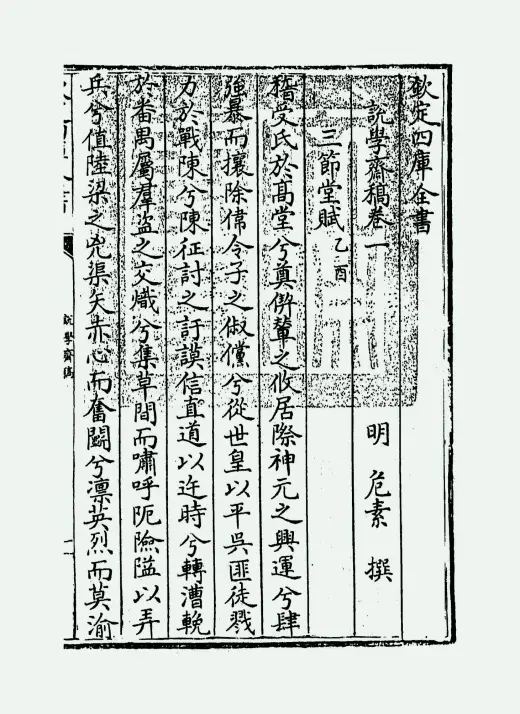 欽定四庫全書
說學齋稿卷一
明 危素 撰
三節堂賦 乙酉
稽受氏於高堂兮奠併輦之攸居際神元之興運兮肆
強暴而攘除偉令子之俶儻兮從世皇以平吳匪徒戮
力於戰陳兮陳征討之訏謨信直道以迕時兮轉漕輓
於番禺屬羣盜之交熾兮集草間而嘯呼阨險隘以弄
兵兮值陸梁之兇渠矢赤心而奮鬬兮凛英烈而莫渝
說學齋稿
一